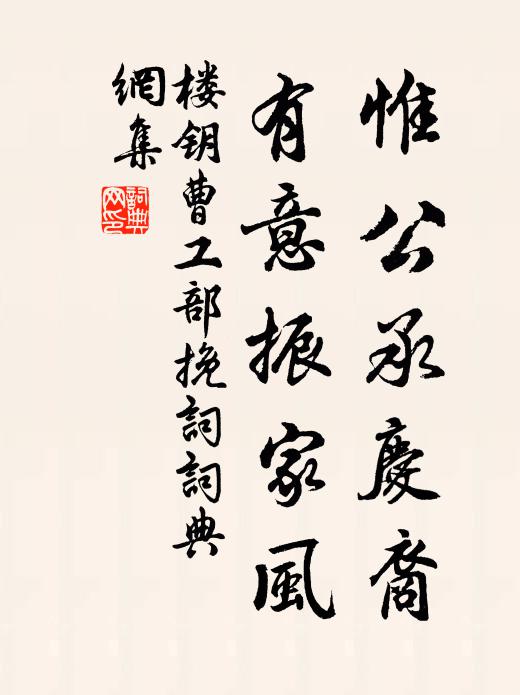 惟公承慶裔
有意振家風
楼钥曹工部挽詞詞典
網集
詞典
网印